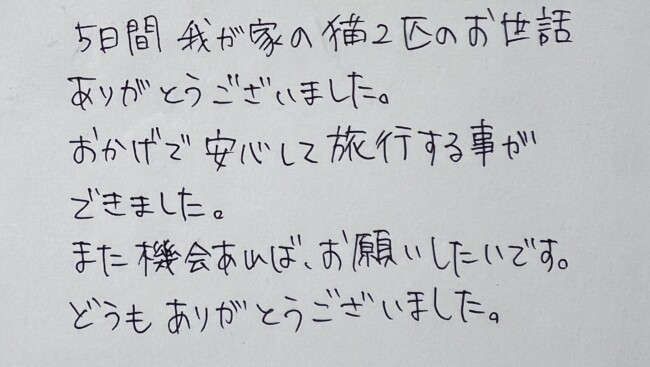 5日間 我が家の猫2匹のお世話
ありがとうございました。
おかげで安心して旅行する事が
できました。
また機会あれば、お願いしたいです。
どうもありがとうございました。